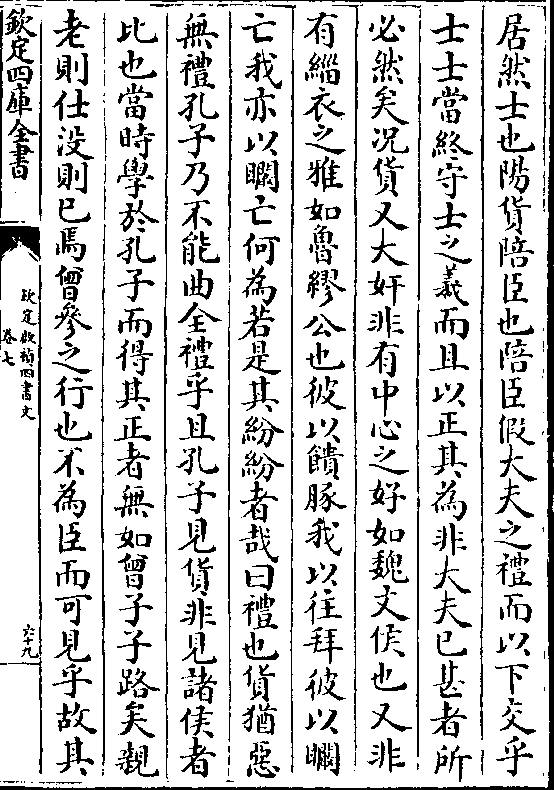 居然士也陽貨陪臣也陪臣假大夫之禮而以下交乎
士士當終守士之義而且以正其為非大夫已甚者所
必然矣况貨又大奸非有中心之好如魏文侯也又非
有緇衣之雅如魯繆公也彼以饋豚我以往拜彼以瞷
亡我亦以瞷亡何為若是其紛紛者哉曰禮也貨猶惡
無禮孔子乃不能曲全禮乎且孔子見貨非見諸侯者
比也當時學於孔子而得其正者無如曾子子路矣親
老則仕没則已焉曾參之行也不為臣而可見乎故其
欽定四庫全書
欽定啟禎四書文
卷七
六十九